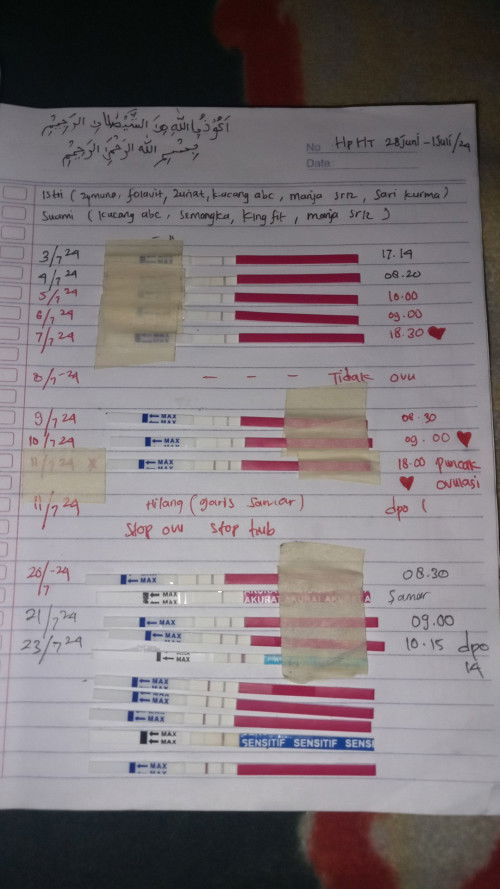 اعوذ بالله من الشيطان الرجيم
بسم الله الرحمن الرحيم
No HpHT 28 Juni - 1 Juli/24
Date
Istri ( zymuno, folavit, zuriat, kacang abc, manja sr12, Sari kurma )
Suami ( kacang abc, semangka, King fit, manja sr12 )
3/7 24 17.14
4/7 24 08.20
5/7 24 10.00
6/7 24 09.00
7/7 24 18.30
8/7 -24 - - - Tidak ovu
9/7 24 MAX 08.30
10/7 24 MAX 09.00
11/7 24 x MAX 18.00 puncak
ovulasi
11/7 24 Hilang (garis samar) dpo 1
Stop ovu stop hub
20/7 -24 MAX 08.30
MAX AKURAT AKURAT AKURAT Samar
21/7 24 MAX 09.00
23/7 24 MAX 10.15 dpo
14
MAX
MAX
MAX
MAX
MAX SENSITIF SENSITIF SENSI
MAX